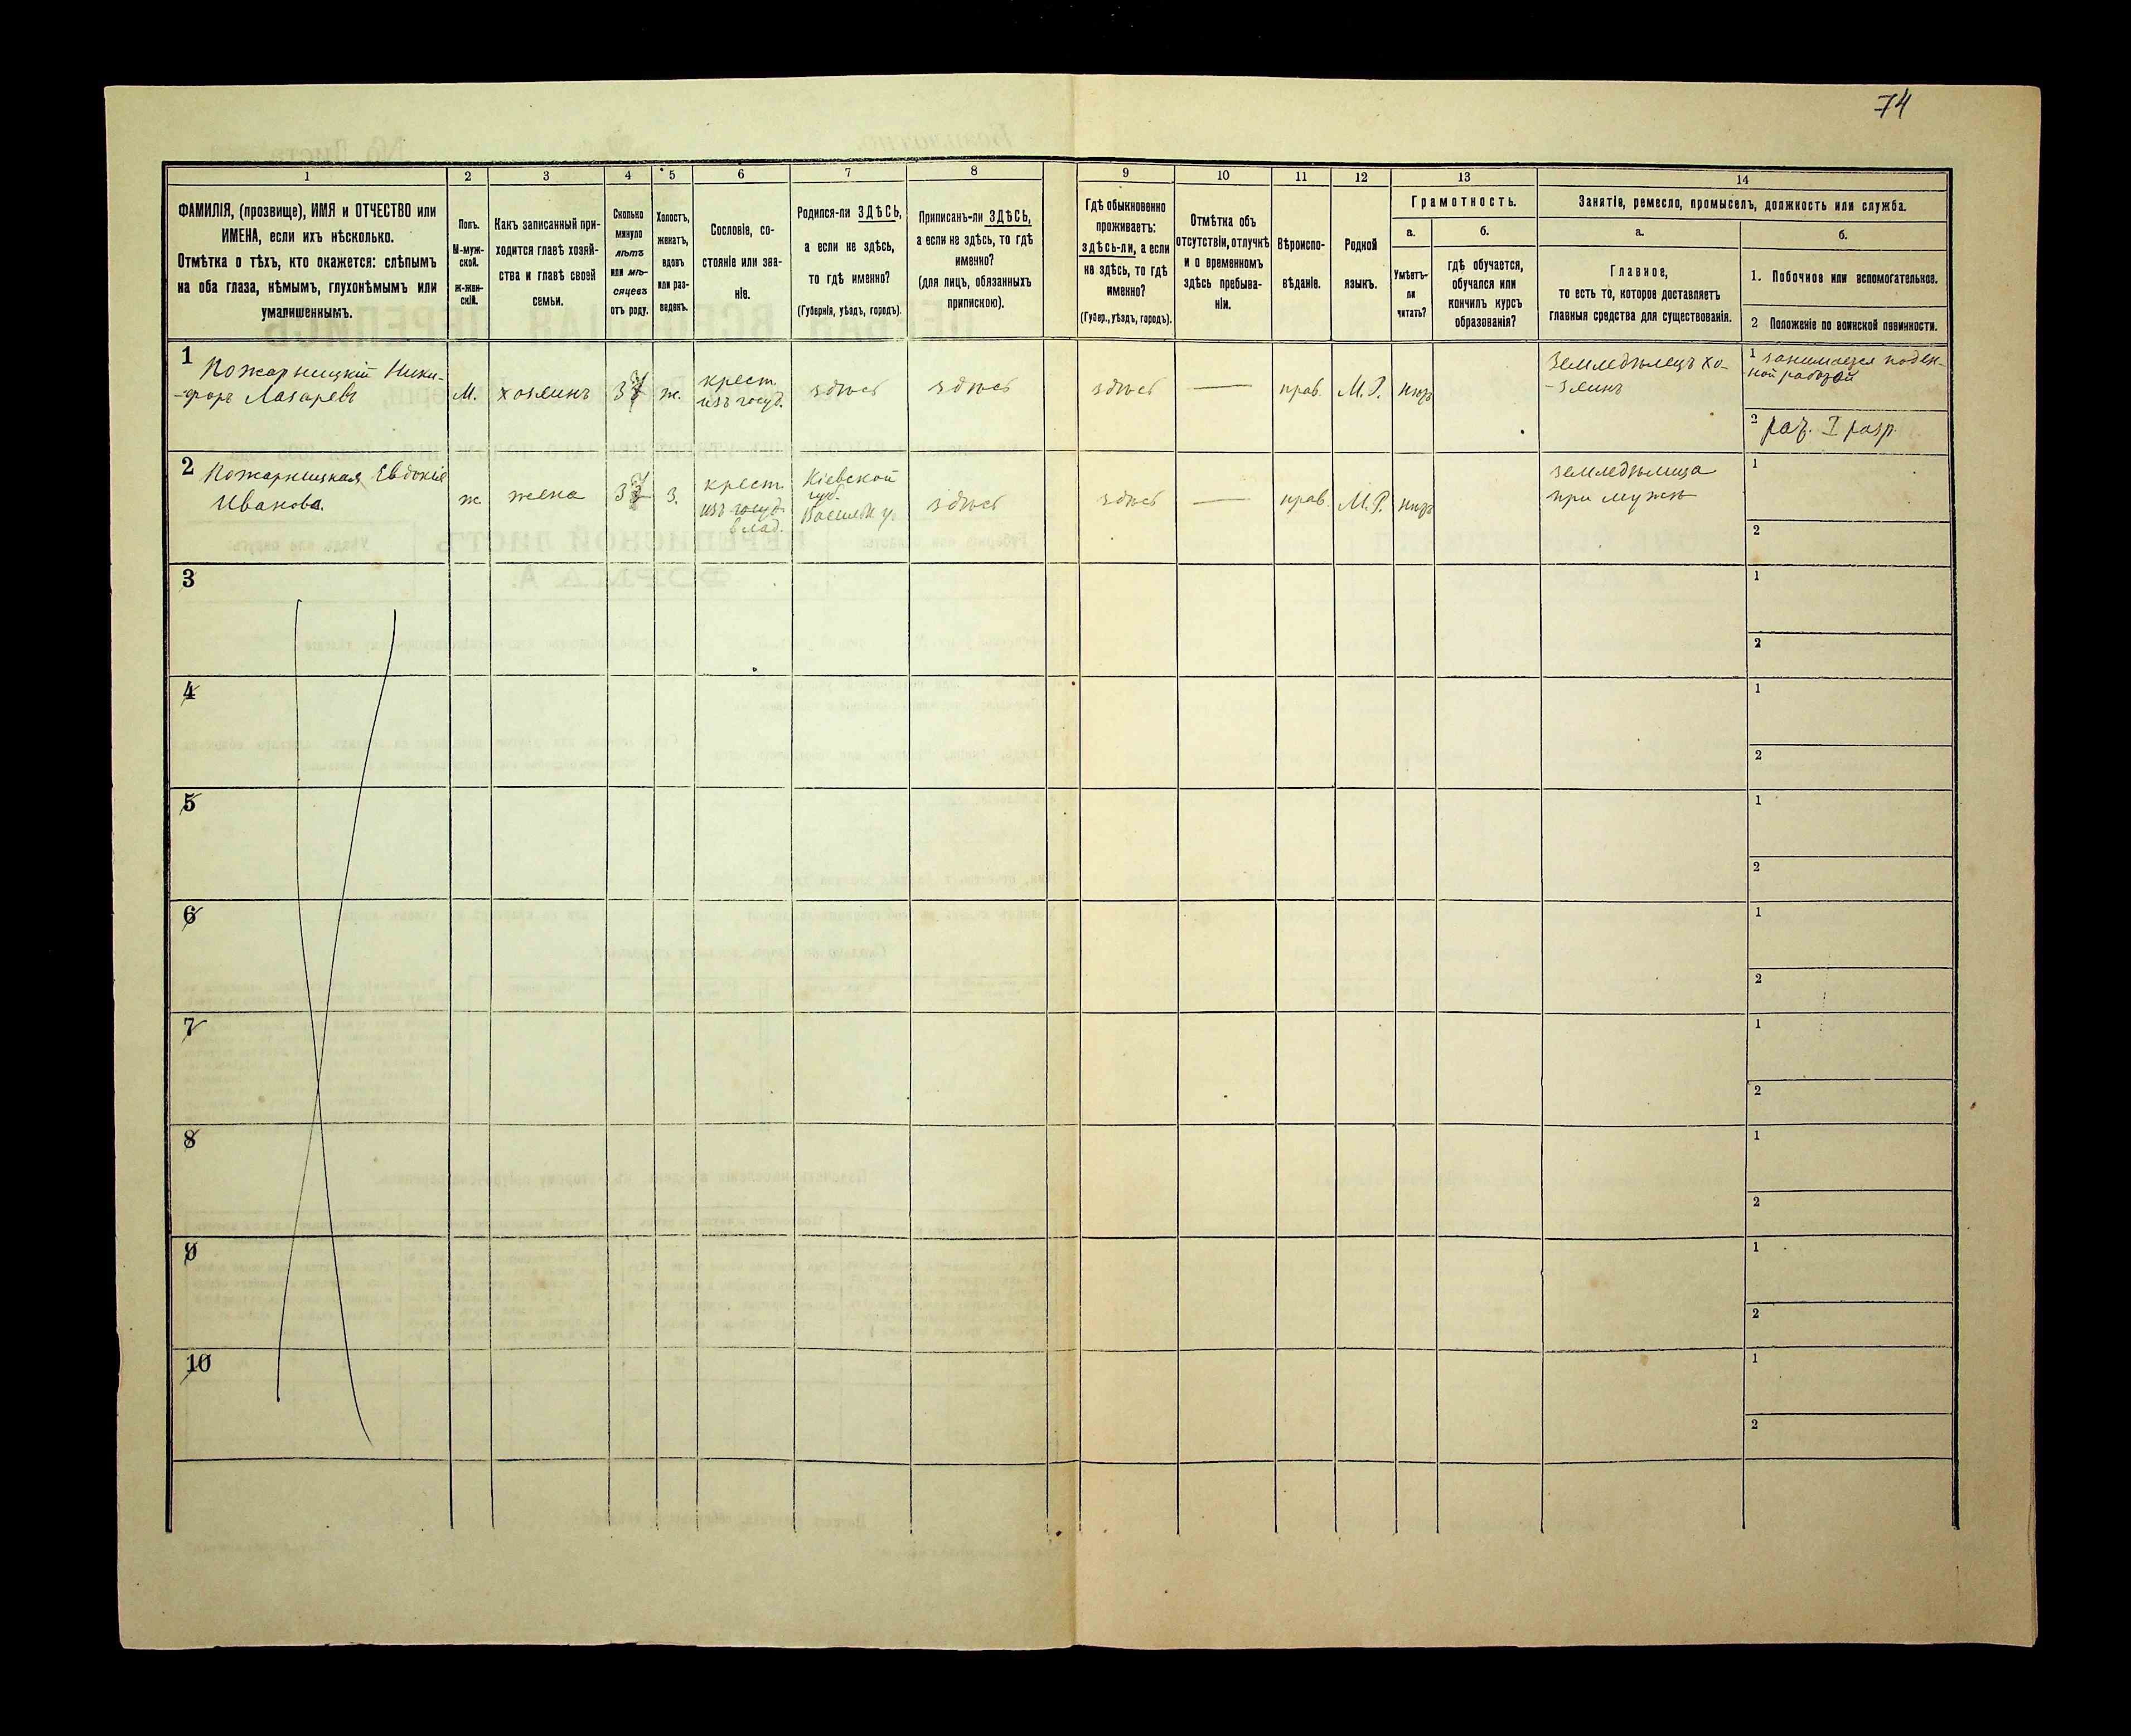 74
1 2 3 4 5 6 7 8 9 10 11 12 13 14
ФАМИЛІЯ, (прозвище), ИМЯ и ОТЧЕСТВО или
ИМЕНА, если ихъ нѣсколько.
Отмѣтка о тѣхъ, кто окажется: слѣпымъ
на оба глаза, нѣмымъ, глухонѣмымъ или
умалишеннымъ.
Полъ.
М-муж-
ской.
Ж-жен-
скій.
Какъ записанный при-
ходится главѣ хозяй-
ства и главѣ своей
семьи.
Сколько
минуло
лѣтъ
или мѣ-
сяцевъ
отъ роду.
Холостъ,
женатъ,
вдовъ
или раз-
веденъ.
Сословіе, со-
стояніе или зва-
ніе.
Родился-ли ЗДѢСЬ,
а если не здѣсь,
то гдѣ именно?
(Губернія, уѣздъ, городъ).
Приписанъ-ли ЗДѢСЬ,
а если не здѣсь, то гдѣ
именно?
(для лицъ, обязанныхъ
припискою).
Гдѣ обыкновенно
проживаетъ:
здѣсь-ли, а если
не здѣсь, то гдѣ
именно?
(Губер., уѣздъ, городъ).
Отмѣтка объ
отсутствіи, отлучкѣ
и о временномъ
здѣсь пребыва-
ніи.
Вѣроиспо-
вѣданіе.
Родной
языкъ.
Грамотность.
а.
Умѣетъ-
ли
читать?
б.
гдѣ обучается,
обучался или
кончилъ курсъ
образованія?
Занятіе, ремесло, промыселъ, должность или служба.
а.
Главное,
то есть то, которое доставляетъ
главныя средства для существованія.
б.
1. Побочное или вспомогательное.
2 Положеніе по воинской повинности.
1
Пожарницкій Ники-
-форъ Лазаревъ
М.
хозяинъ
37
ж.
крест.
изъ госуд.
здѣсь
здѣсь
здѣсь
—
прав.
М.Р.
нѣтъ
Земледѣлецъ хо-
-зяинъ
1 занимается поден-
ной работой
2 рат. I разр.
2
Пожарницкая Евдокія
Иванова.
ж
жена
3
з.
крест.
изъ госуд.
влад.
Кіевской
губ.
Васильк. у.
здѣсь
здѣсь
—
прав.
М.Р.
нѣтъ
земледѣлица
при мужѣ
1
2
3
1
2
4
1
2
5
1
2
6
1
2
7
1
2
8
1
2
9
1
2
10
1
2